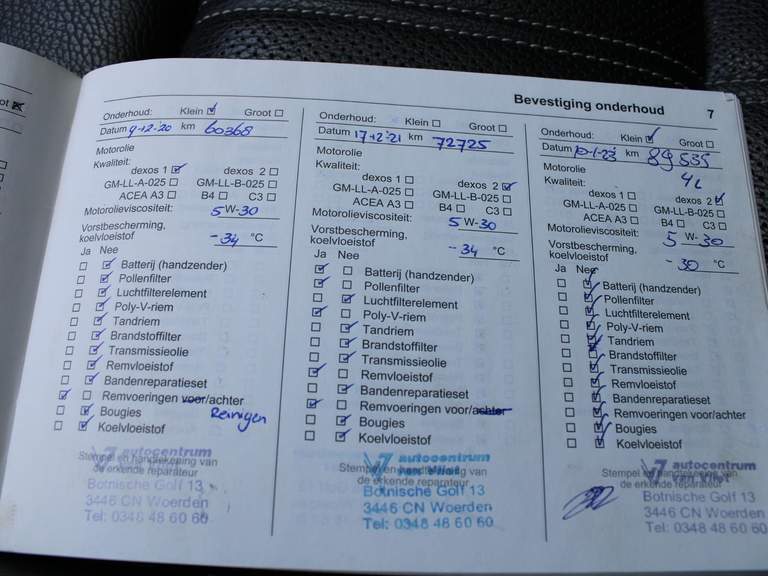 ot
Bevestiging onderhoud 7
Onderhoud: Klein Groot
Datum 9-12-'20 km 60368
Motorolie
Kwaliteit:
dexos 1 dexos 2
GM-LL-A-025 GM-LL-B-025
ACEA A3 B4 C3
Motorolieviscositeit: 5 W-30
Vorstbescherming,
koelvloeistof -34 °C
Ja Nee
Batterij (handzender)
Pollenfilter
Luchtfilterelement
Poly-V-riem
Tandriem
Brandstoffilter
Transmissieolie
Remvloeistof
Bandenreparatieset
Remvoeringen voor/achter
Bougies Reinigen
Koelvloeistof
Stempel en handtekening van
de erkende reparateur
autocentrum
Botnische Golf 13
3446 CN Woerden
Tel: 0348 48 60 60
Onderhoud: Klein Groot
Datum 17-12-'21 km 72725
Motorolie
Kwaliteit:
dexos 1 dexos 2
GM-LL-A-025 GM-LL-B-025
ACEA A3 B4 C3
Motorolieviscositeit: 5 W-30
Vorstbescherming,
koelvloeistof -34 °C
Ja Nee
Batterij (handzender)
Pollenfilter
Luchtfilterelement
Poly-V-riem
Tandriem
Brandstoffilter
Transmissieolie
Remvloeistof
Bandenreparatieset
Remvoeringen voor/achter
Bougies
Koelvloeistof
Stempel en handtekening van
de erkende reparateur
autocentrum
Botnische Golf 13
3446 CN Woerden
Tel: 0348 48 60 60
Onderhoud: Klein Groot
Datum 10-1-23 km 89535
Motorolie 4L
Kwaliteit:
dexos 1 dexos 2
GM-LL-A-025 GM-LL-B-025
ACEA A3 B4 C3
Motorolieviscositeit: 5 W-30
Vorstbescherming,
koelvloeistof -30 °C
Ja Nee
Batterij (handzender)
Pollenfilter
Luchtfilterelement
Poly-V-riem
Tandriem
Brandstoffilter
Transmissieolie
Remvloeistof
Bandenreparatieset
Remvoeringen voor/achter
Bougies
Koelvloeistof
Stempel en handtekening van
de erkende reparateur
autocentrum
van Vliet
Botnische Golf 13
3446 CN Woerden
Tel: 0348 48 60 60